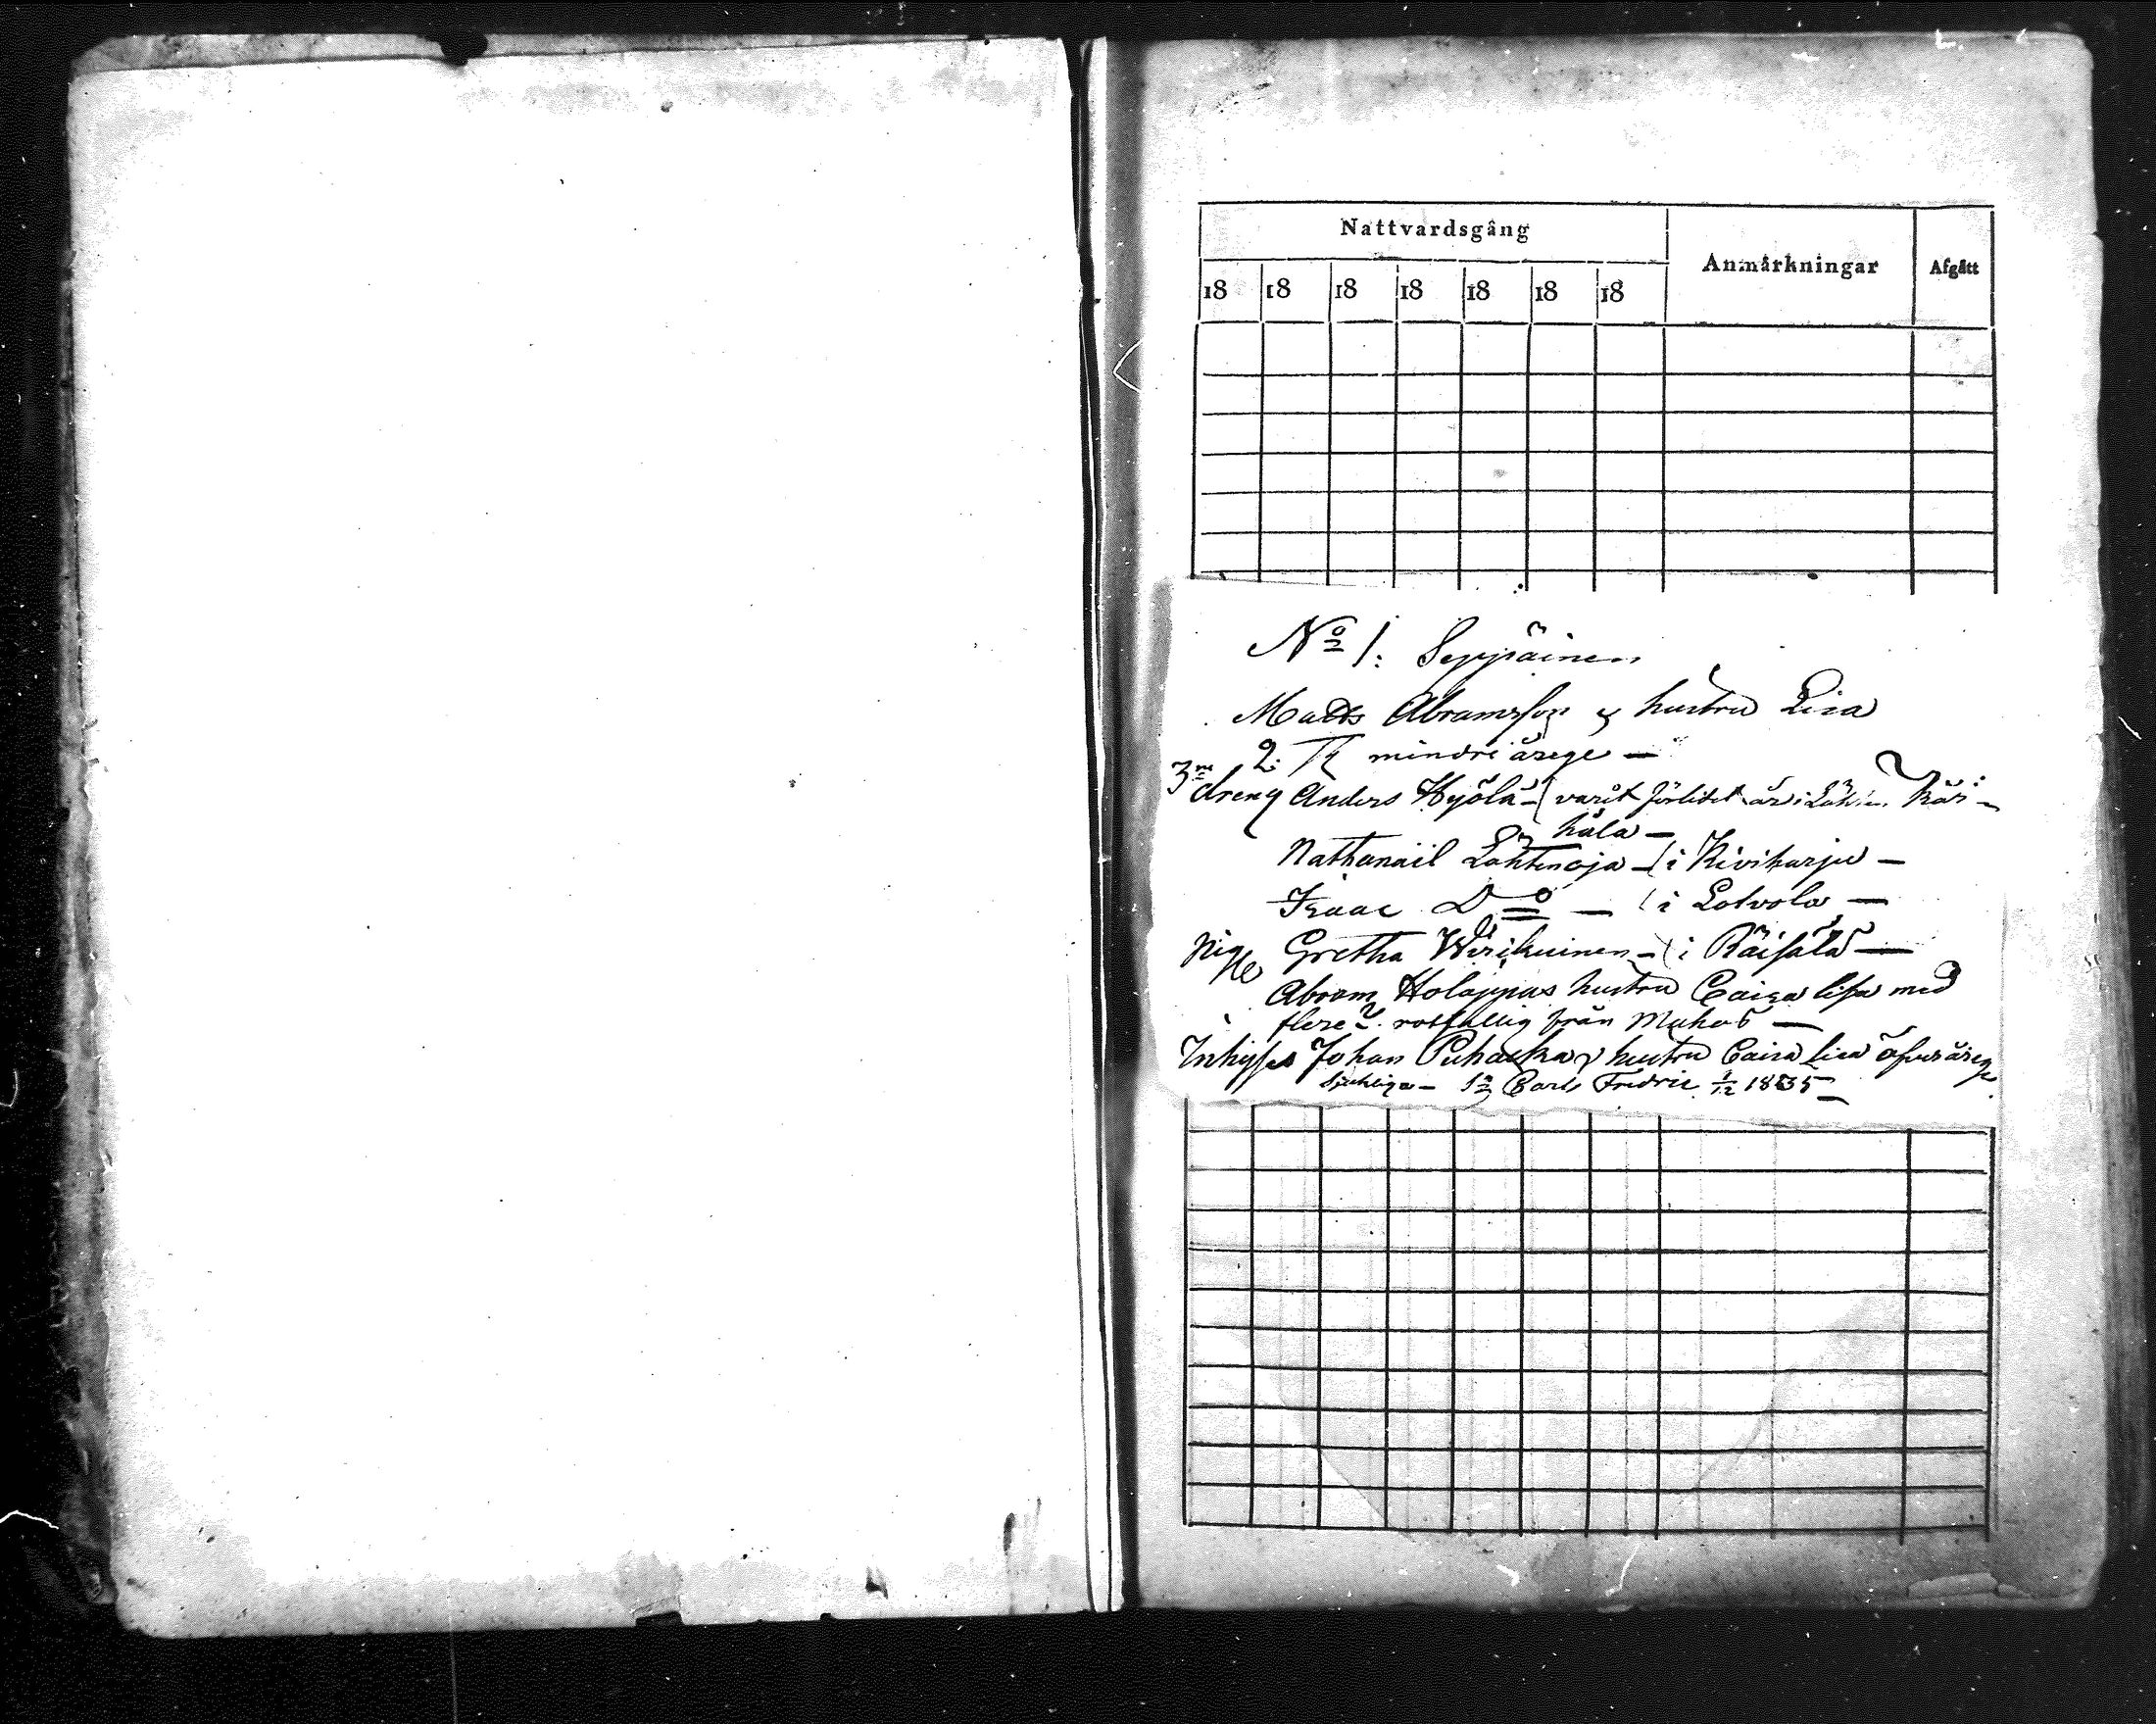 Nattvardsgång
Anmärkningar
Afgått
18 18 18 18 18 18 18
No 1: Seppäinen
Matts Abramsson & hustru Lisa
2: mindreårege —
3ne dreng Anders Kyölä — varit förlidet år i
hälä —
Nathanäil Lahtinoja — i Kiviharju —
Isaac Do — i Lotvola —
Gretha — i Räisälä —
Abram Holappas hustru Caisa Lisa med
flere från Muhos —
Inhyses Johan Puhakka & hustru Caisa Lisa
Sjukliga — Sn Carl Fredric 1/12 1835 —